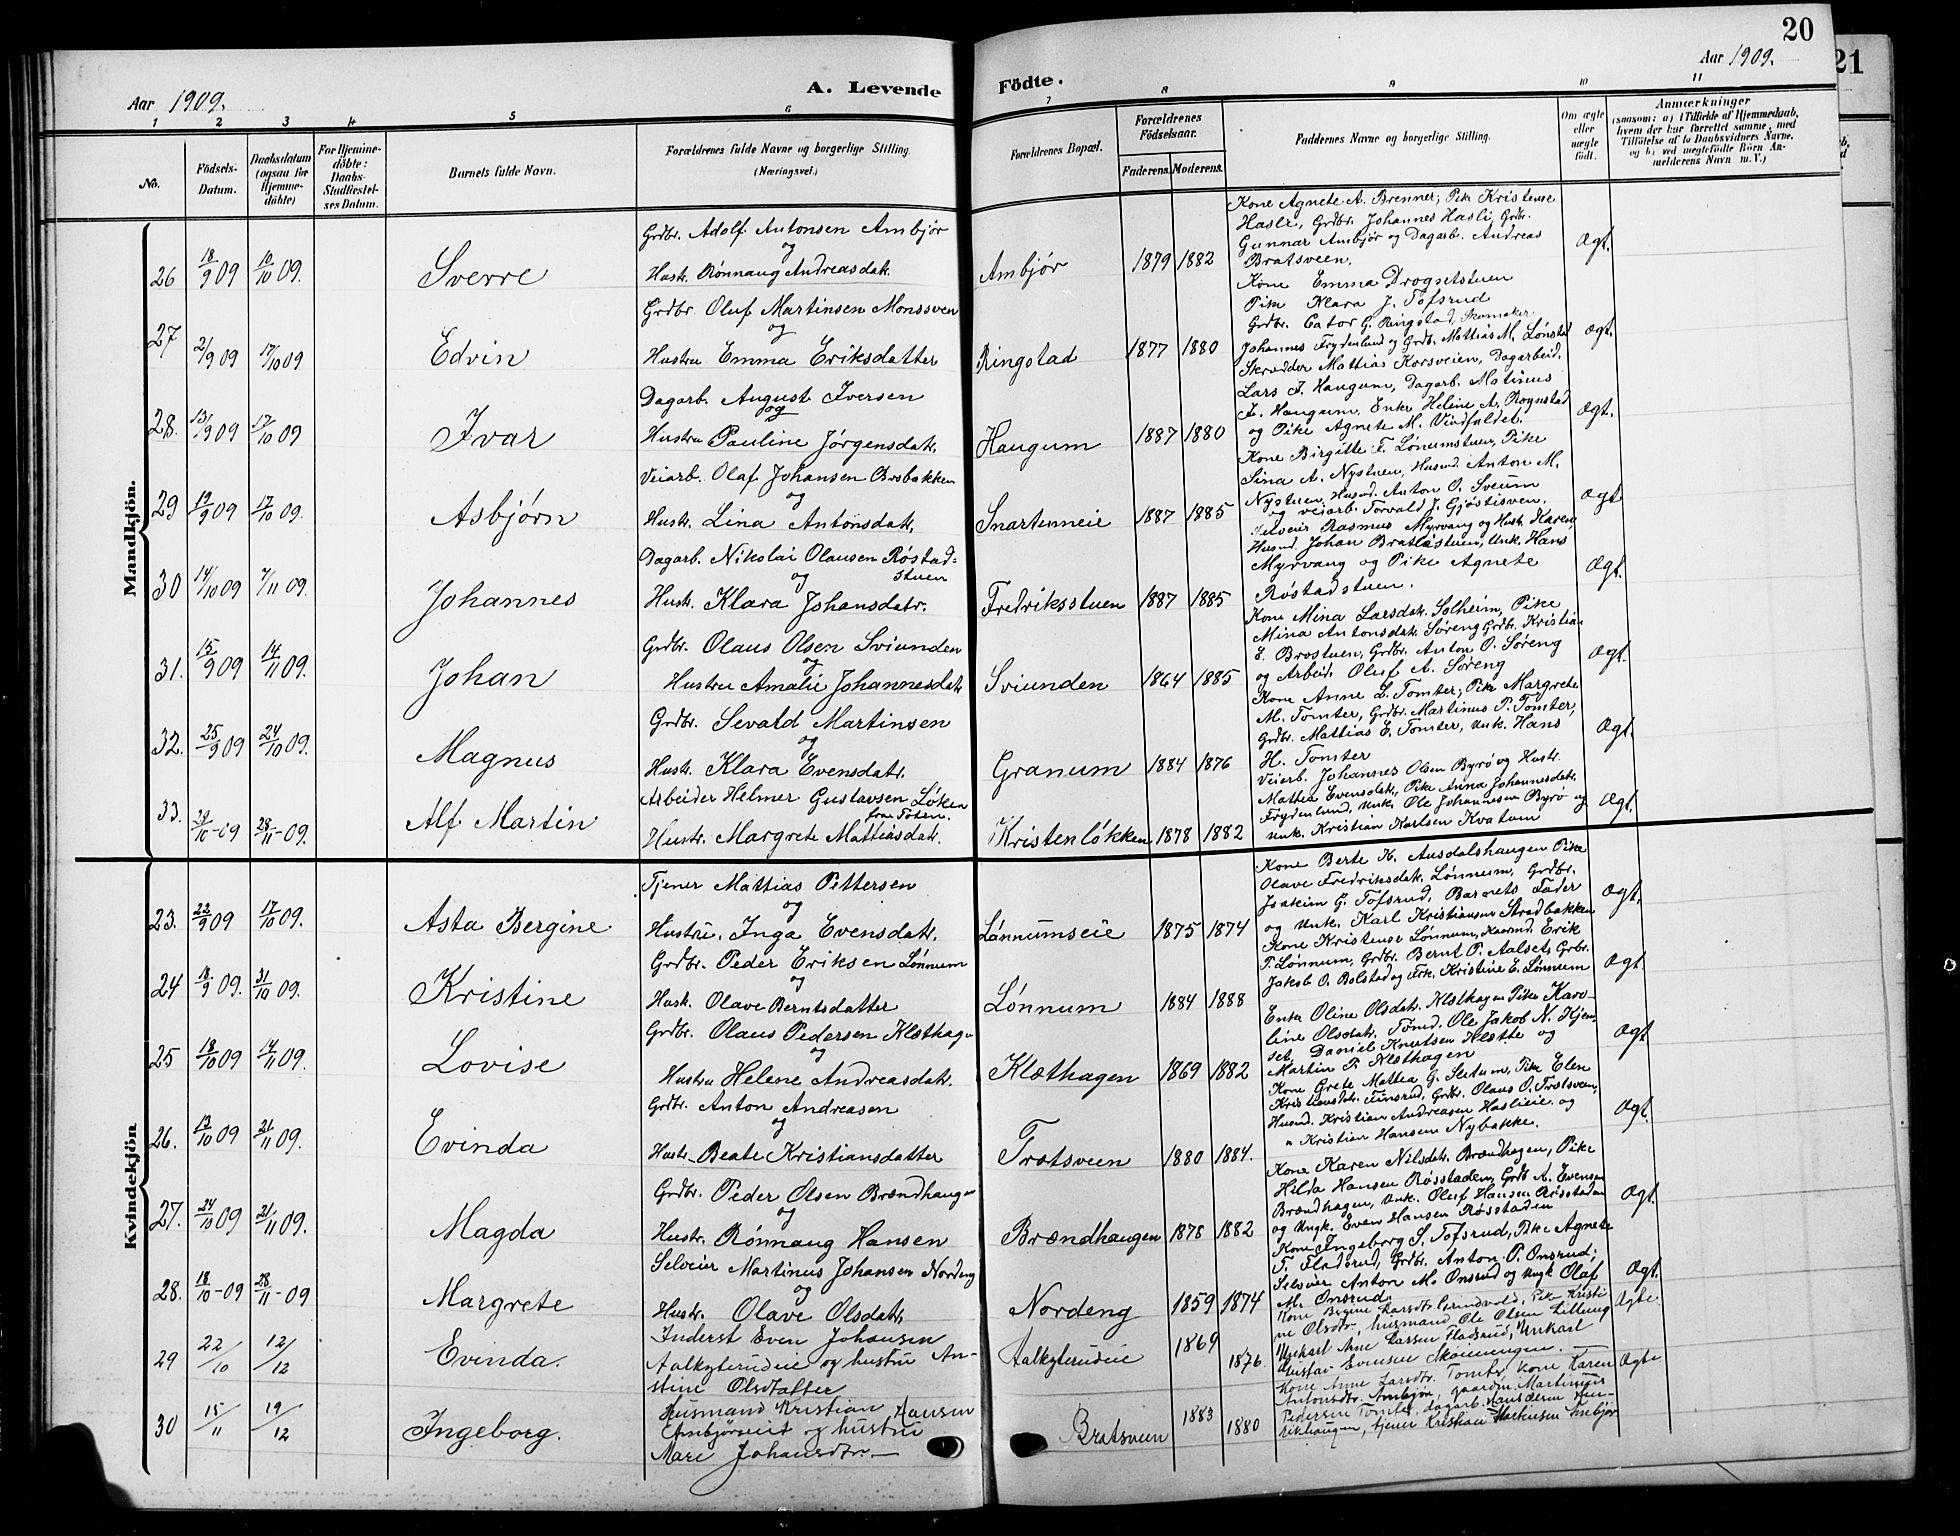 20
21
Aar 1909.
A. Levende
Födte.
Aar 1909.
1 2 3 4 5 6 7 8 9 10 11
No.
Födsels-
Datum.
Daabsdatum
(ogsaa for
Hjemme-
döbte)
For Hjemme-
döbte:
Daabs-
Stadfæstel-
ses Datum.
Barnets fulde Navn.
Forældrenes fulde Navne og borgerlige Stilling
(Næringsvei.)
Forældrenes Bopæl.
Forældrenes
Födselsaar.
Faderens. Moderens.
Faddernes Navne og borgerlige Stilling.
Om ægte
eller
uægte
født.
Anmærkninger
(saasom: a) i Tilfælde af Hjemmedaab,
hvem der har forrettet samme, med
Tilföielse af to Daabsvidners Navne,
og b) ved uægtefödte Börn An-
melderens Navn m. V.)
Mandkjön.
26 18/9 09 10/10 09. Sverre
Grdbr. Adolf Antonsen Ambjør
og
Hustr. Rønnaug Andreasdatr.
Ambjør 1879 1882
Kone Agnete A. Brenner, Pike Kristense
Hasli, Grdbr. Johannes Hasli, Grdbr.
Gunnar Ambjør og Dagarb. Andreas
Bratsveen.
Ægt.
27 2/9 09 17/10 09 Edvin
Grdbr. Oluf Martinsen Monssven
og
Hustru Emma Eriksdatter
Ringstad 1877 1880
Kone Emma Drogsetstuen
Pike Klara J. Tofsrud
Grdbr. Cator G. Ringstad, Skomaker
Johannes Frydenlund og Grdb. Mattias M. Lønstad
Ægt.
28. 13/9 09 17/10 09 Ivar
Dagarb. August Iversen
og
Hustru Pauline Jørgensdatr.
Haugum 1887 1880
Skrædder Mattias Korsveien, Dagarbeid.
Lars J. Haugum, Dagarb. Matinus
J. Haugum, Enke Helene A. Rognstad
og Pike Agnete M. Vindfaldet.
Ægt.
29 19/9 09 17/10 09. Asbjørn
Veiarb. Olaf Johansen Brobakken
og
Hustr. Lina Antonsdatr.
Snartumeie 1887 1885
Kone Birgitte F. Lønumstuen, Pike
Sina A. Nystuen, Husmd. Anton M.
Nystuen, Husmd. Anton O. Sveum
og veiarb. Torvald J. Gjøstisven.
Ægt
30 14/10 09 7/11 09. Johannes
Dagarb. Nikolai Olausen Røstad-
og stuen
Hustr. Klara Johansdatr.
Fredriksstuen 1887 1885
Selveier Rasmus Myrvang og Hustr. Karen,
Husmd. Johan Bratlistuen, Unk. Hans
Myrvang og Pike Agnete
Røstadstuen.
Ægt.
31. 15/9 09 14/11 09. Johan
Grdbr. Olaus Olsen Sviunden
og
Hustru Amalie Johannesdatr
Sviunden 1864 1885
Kone Mina Larsdatr. Solheim, Pike
Mina Antonsdatr. Søreng Grdbr. Kristian
E. Brostuen, Grdbr. Anton O. Søreng
og Arbeid. Oluf A. Søreng
Ægt.
32. 25/9 09 24/10 09. Magnus
Grdbr. Sevald Martinsen
og
Hustr. Klara Evensdatr.
Granum 1884 1876
Kone Anne L. Tomter, Pike Margrete
M. Tomter, Grdbr. Martinus P. Tomter,
Grdbr. Mattias E. Tomter, Unk. Hans
H. Tomter
Ægt.
33. 29/10-09 28/11-09. Alf Martin
Arbeider Helmer Gustavsen Løken
fra Toten.
Hustr. Margrete Mattiasdatr.
Kristenløkken 1878 1882
Veiarb. Johannes Olsen Byrø og Hustr.
Mathea Evensdatr., Pike Anna Johannesdatr.
Frydenlund, Unk. Ole Johannesen Byrø og
Unk. Kristian Karlsen Kvatum
Ægt.
Kvindekjön
23. 22/9 09 17/10 09. Asta Bergine
Tjener Mattias Pettersen
og
Hustru. Inga Evensdatr.
Lønnumseie 1875 1874
Kone Berte K. Ausdalshaugen Pike
Olave Fredriksdatr. Lønnum, Grdbr.
Joakim G. Tofsrud, Barnets Fader
og Unk. Karl Kristiansen Stradbakken
Ægt.
24 18/9 09. 31/10 09. Kristine
Grdbr. Peder Eriksen Lønnum
og
Hust. Olave Berntsdatter
Lønnum 1884 1888
Kone Kristense Lønnum, Kaarmd. Erik
P. Lønnum, Grdbr. Bernt P. Aalset, Grbr.
Jakob O. Bolstad og Frk. Kristine E. Lønnum
Ægt.
25 18/10 09 14/11 09. Lovise
Grdbr. Olaus Pedersen Klæthagen
og
Hustru Helene Andreasdatr.
Klæthagen 1869 1882
Enke Oline Olsdatr. Klæthagen Pike Karo-
line Olsdatr. Tømd. Ole Jakob N. Hjem-
set, Daniel Knutsen Klætte og
Martin P. Klæthagen
Ægt
26. 17/10 09 21/11 09. Evinda
Grdbr. Anton Andreasen
og
Hustr. Beate Kristiansdatter
Trætsveen 1880 1884.
Kone Grete Mattea G. Sletum, Pike Elen
Kristiansdtr. Finsrud, Grdbr. Olaus O. Trætsveen,
Husmd. Kristian Andreasen Haslieie og
" Kristian Hansen Nybakke.
Ægt.
27. 24/10 09 21/11 09. Magda
Grdbr. Peder Olsen Brændhaugen
og
Hustr. Rønnaug Hansen
Brændhaugen 1878 1882
Kone Karen Nilsdatr. Brændhagen, Pike
Hilda Hansen Røsstaden, Grdb A. Evensen
Brændhagen, Unk. Oluf Hansen Røsstaden
og Ungk. Even Hansen Røsstaden
Ægt.
28. 18/10-09 28/11-09 Margrete
Selveier Martinus Johansen Nordeng
og
Hustr. Olave Olsdatr.
Nordeng 1859 1874
Kone Ingeborg S. Tofsrud, Pike Agnete
T. Fladsrud, Grdbr. Anton P. Onsrud,
Selveier Anton M. Onsrud og Ungk Olaf
M. Onsrud.
Ægt.
29 22/10 12/12 Evinda.
Inderst Even Johansen
Aalkyterudeie og hustru An-
stine Olsdatter
Aalkyterudeie 1869 1876.
Kone Regine Larsdtr Grindvold, Pike Kristi-
ne Olsdtr, husmand Ole Olsen Lilleeng
Unkarl Arne Larsen Fladsrud, Unkarl
Gustav Evensen Skøiennengen.
Ægte.
30 15/11 19/12 Ingeborg.
Husmand Kristian Hansen
Ambjørseie og hustru
Mari Johansdtr.
Bratsveen 1883 1880
Kone Anne Larsdtr. Tomter, kone Karen
Antonsdtr. Ambjør, gaardm. Martinus
Pedersen Tomter, dagarb.
tjener Kristian Markusen Ambjør
Ægte